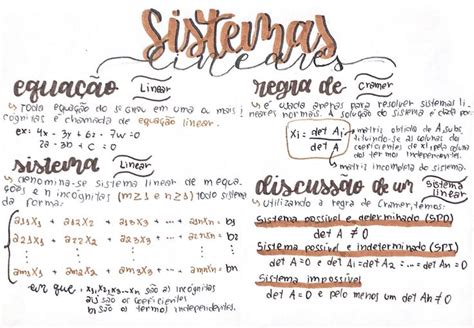 sistemas
lineares
equação linear
↳ Toda equação do 1º grau em uma ou mais in
cógnitas é chamada de equação linear.
ex: 4x - 3y + 6z - 7w = 0
2a - 3b + c = 0
sistema linear
↳ denomina-se sistema linear de m equa
ções e n incógnitas (m≥1 e n≥1) todo sistema
da forma:
a11X1 + a12X2 + a13X3 + ... + a1nXn = b1
a21X1 + a22X2 + a23X3 + ... + a2nXn = b2
am1X1 + am2X2 + am3X3 + ... + amnXn = bn
em que • X1, X2, X3...Xn são as incógnitas
aij são os coeficientes
bj são os termos independentes.
regra de cramer
↳ é usada apenas para resolver sistemas li
neares normais. A solução do sistema é dada por:
Xi = det Ai / det A
matriz obtida de A subs
tituindo-se as colunas dos
coeficientes de xi pela coluna
dos termos independentes.
matriz incompleta do sistema.
discussão de um sistema linear
↳ Utilizando a regra de Cramer, temos:
Sistema possível e determinado (SPD)
det A ≠ 0
Sistema possível e indeterminado (SPI)
det A = 0 e det A1 = det A2 = ... = det An = 0
Sistema impossível
det A = 0 e pelo menos um det An ≠ 0